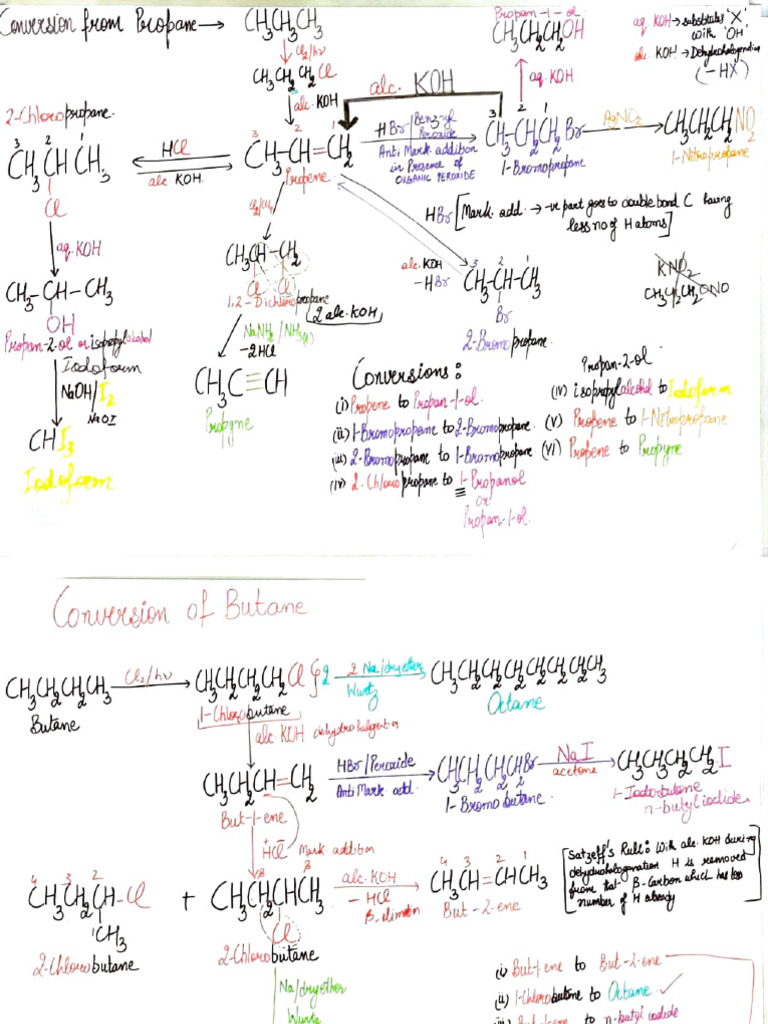 Conversion from Propane → CH3CH3CH3
Cl2/hν
CH3CH2CH2Cl
alc. KOH
Propan-1-ol
CH3CH2CH2OH
aq. KOH
aq. KOH → substitutes 'X' with 'OH'
alc. KOH → Dehydrohalogenation (-HX)
alc. KOH
2-Chloropropane
3 2 1
CH3CHCH3
Cl
HCl
alc KOH.
3 2 1
CH3-CH=CH2
Propene
HBr/Benzoyl Peroxide
Anti Mark. addition
in Presence of
ORGANIC PEROXIDE
3 2 1
CH3-CH2CH2Br
1-Bromopropane
AgNO2
CH3CH2CH2NO2
1-Nitropropane
HBr [Mark. add. → -ve part goes to double bond C having
less no of H atoms]
aq. KOH
CH3-CH-CH3
OH
Propan-2-ol or isopropylalcohol
Iodoform
NaOH/I2
NaOI
CHI3
Iodoform
CH3CH-CH2
Cl Cl
1,2-Dichloropropane
2 alc. KOH
NaNH2/NH3(l)
-2HCl
CH3C≡CH
Propyne
alc. KOH
-HBr
3 2 1
CH3-CH-CH3
Br
2-Bromopropane
KNO2
CH3CH2CH2ONO
Conversions:
(i) Propene to Propan-1-ol.
(ii) 1-Bromopropane to 2-Bromopropane.
(iii) 2-Bromopropane to 1-Bromopropane.
(iv) 2-Chloropropane to 1-Propanol
or
Propan-1-ol.
Propan-2-ol.
(iv) isopropylalcohol to Iodoform
(v) Propene to 1-Nitropropane
(vi) Propene to Propyne
Conversion of Butane
CH3CH2CH2CH3
Butane
Cl2/hν
CH3CH2CH2CH2Cl}2
1-Chlorobutane
2 Na/dryether
Wurtz
CH3CH2CH2CH2CH2CH2CH2CH3
Octane
alc. KOH dehydrohalogenation
CH3CH2CH=CH2
But-1-ene
HBr/Peroxide
Anti Mark add.
CH3CH2CH2CH2Br
1-Bromobutane
NaI
acetone
CH3CH2CH2CH2I
1-Iodobutane
n-butyl iodide
HCl Mark addition
4 3 2
CH3CH2CH-Cl
1CH3
2-Chlorobutane
+
β β
CH3CH2CHCH3
Cl
2-Chlorobutane
alc. KOH
-HCl
β-elimtn
4 3 2 1
CH3CH=CHCH3
But-2-ene
[Satzeff's Rule: With alc. KOH during
dehydrohalogenation H is removed
from that β-Carbon which has less
number of H already]
Na/dryether
Wurtz
(i) But-1 ene to But-2-ene
(ii) 1-Chlorobutane to Octane ✓
(iii) But-1-ene to n-butyl iodide